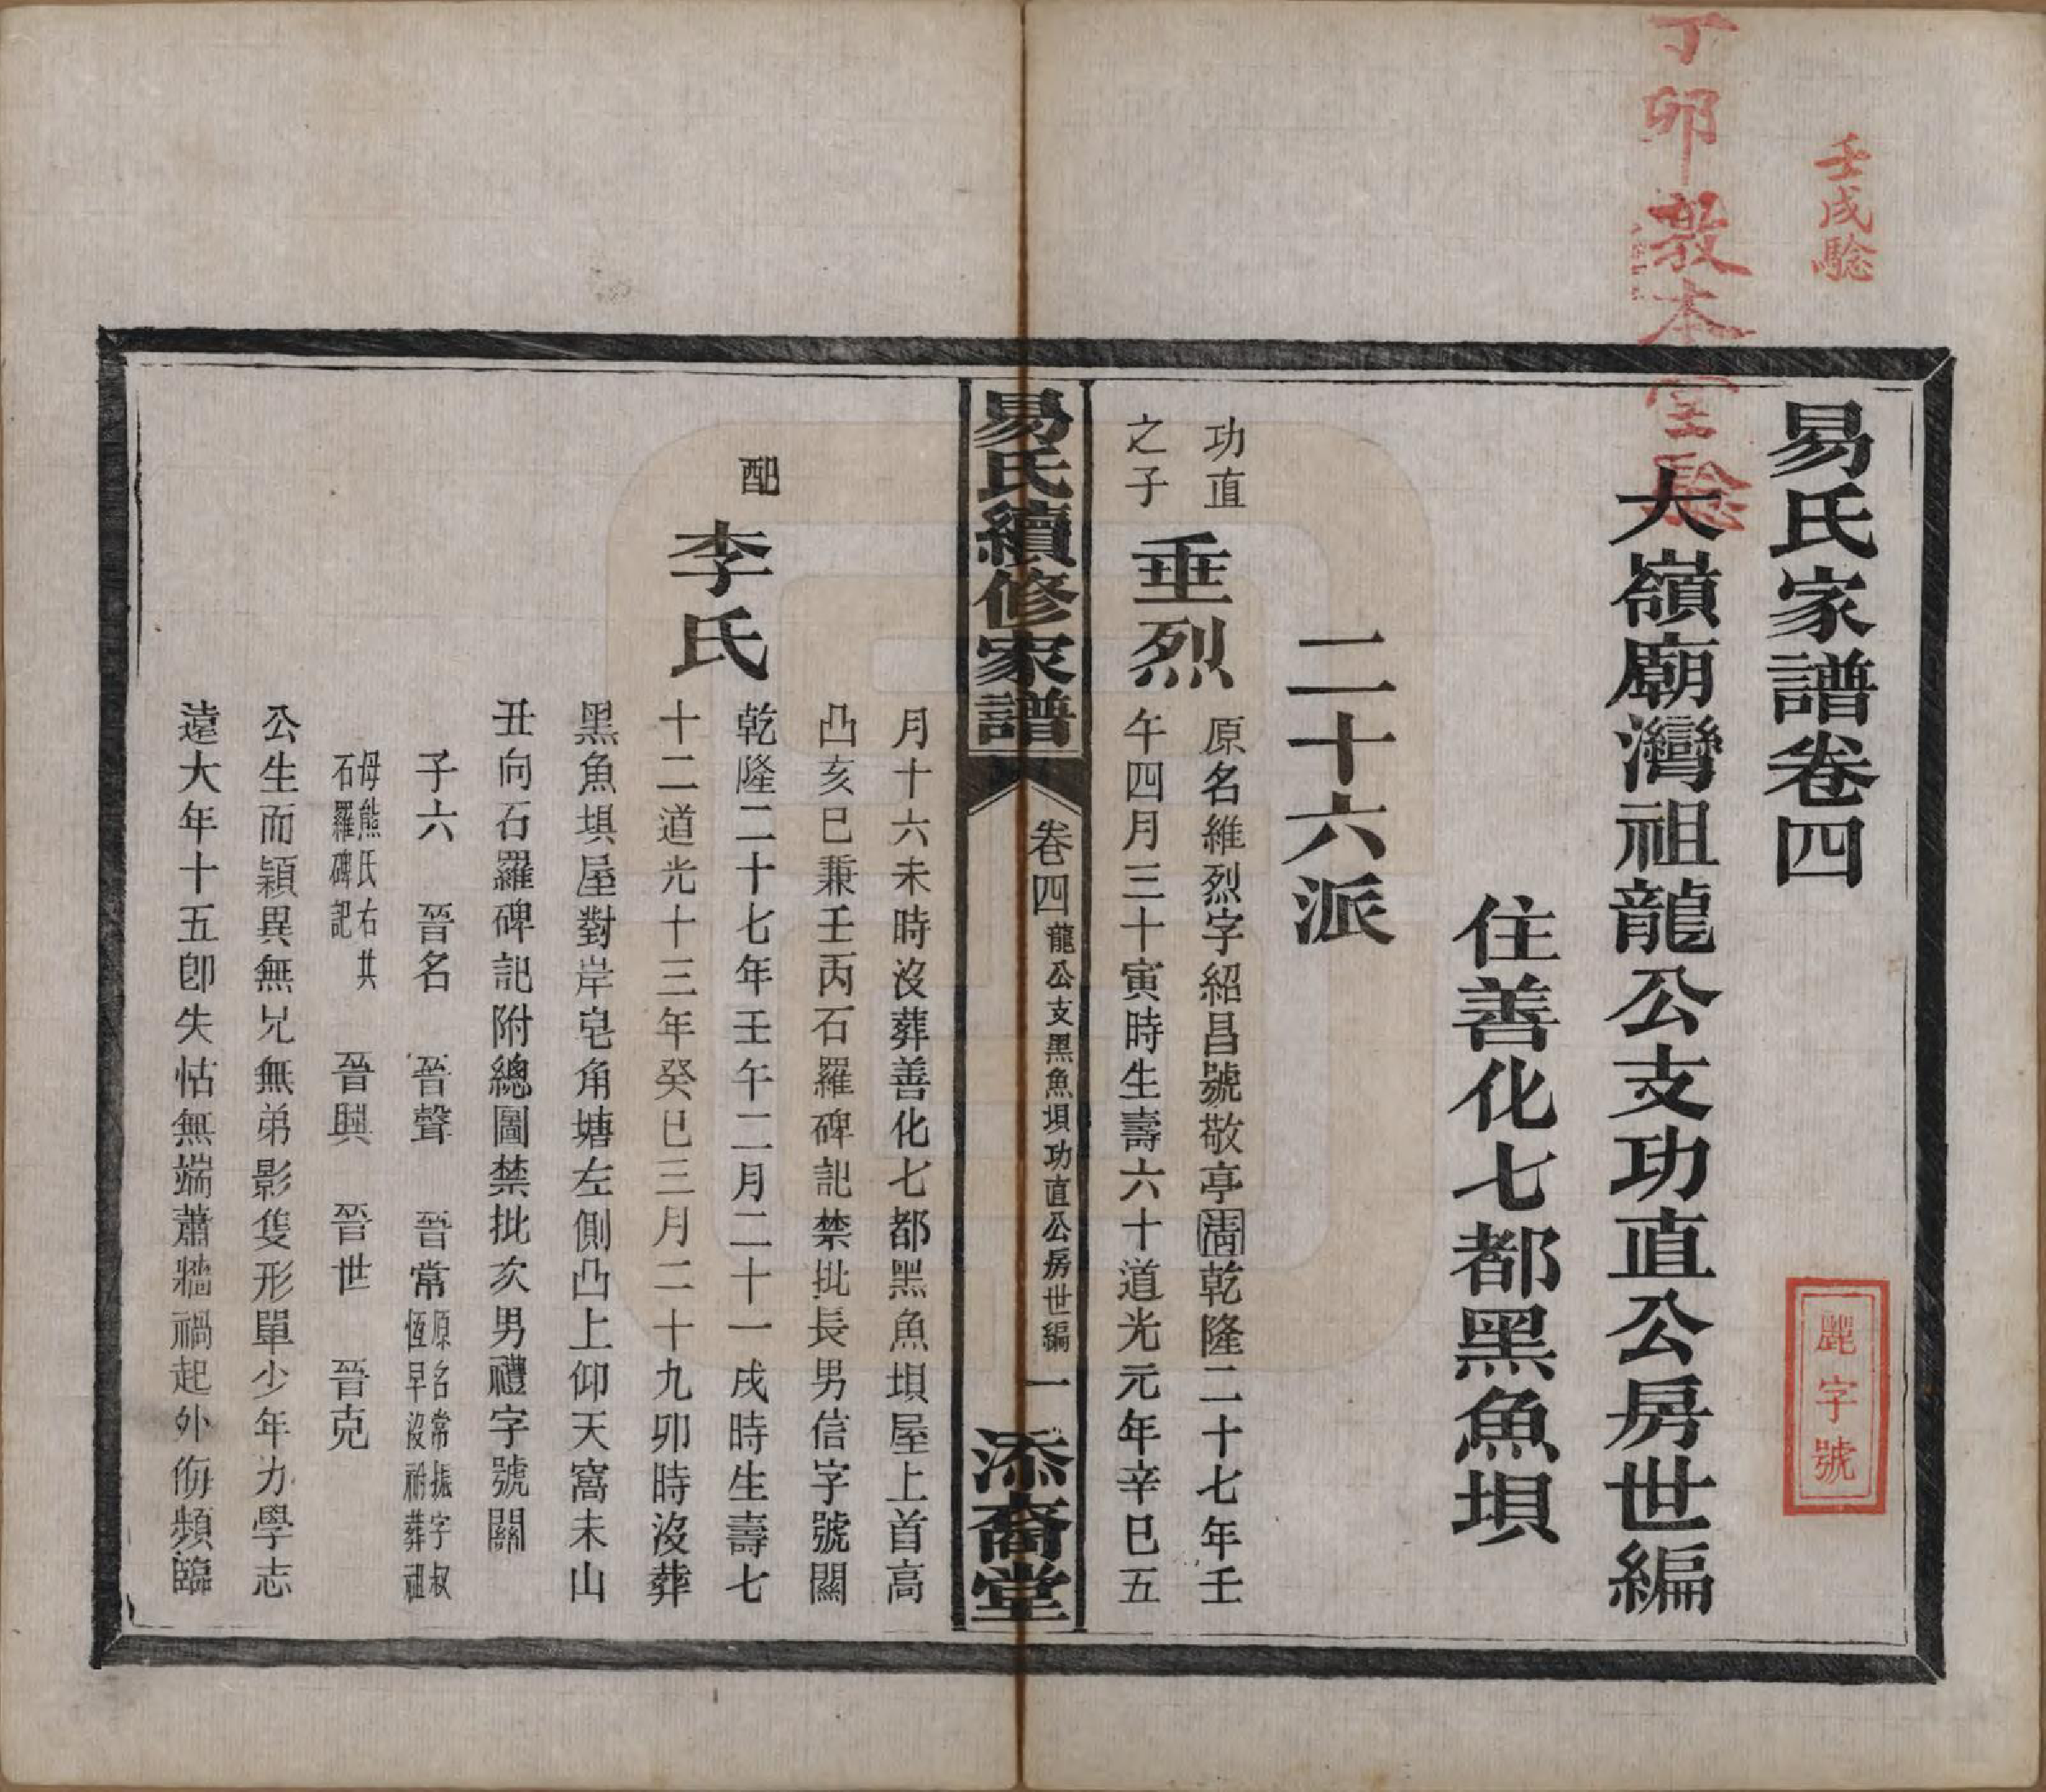 壬戌驗
丁卯敦本堂驗
易氏家譜卷四
麗字號
大嶺廟灣祖龍公支功直公房世編
住善化七都黑魚垻
二十六派
功直
之子
垂烈
原名維烈字紹昌號敬亭清乾隆二十七年壬
午四月三十寅時生壽六十道光元年辛巳五
易氏續修家譜
卷四
龍公支黑魚垻功直公房世編
一
添裔堂
月十六未時沒葬善化七都黑魚垻屋上首高
凸亥巳兼壬丙石羅碑記禁批長男信字號關
配
李氏
乾隆二十七年壬午二月二十一戌時生壽七
十二道光十三年癸巳三月二十九卯時沒葬
黑魚垻屋對岸皂角塘左側凸上仰天窩未山
丑向石羅碑記附總圖禁批次男禮字號關
子六 晉名 晉聲 晉常
原名常振字叔
恆早沒祔葬祖
母熊氏右共
石羅碑記
晉興 晉世 晉克
公生而穎異無兄無弟影隻形單少年力學志
遠大年十五卽失怙無端蕭牆禍起外侮頻臨